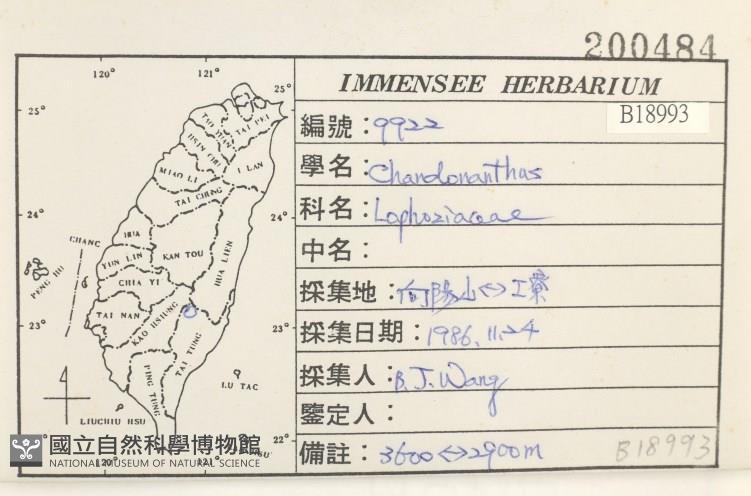 200484
IMMENSEE HERBARIUM
B18993
編號：9922
學名：Chandonanthus
科名：Lophoziaceae
中名：
採集地：向陽山<->工寮
採集日期：1986.11.24
採集人：B.J.Wang
鑒定人：
備註：3600<->2900m
B18993
120° 121°
25° 25°
TAO YUEN
TAI PEI
HSIN CHU
I LAN
MIAO LI
TAI CHUNG
24° 24°
CHANG
HUA
PENG HU
YUN LIN
KAN TOU
HUA LIEN
CHIA YI
TAI NAN
KAO HSIUNG
23° 23°
TAI TUNG
PING TUNG
LU TAC
LIUCHIU HSU
22°
120° 121°
國立自然科學博物館
NATIONAL MUSEUM OF NATURAL SCIENCE